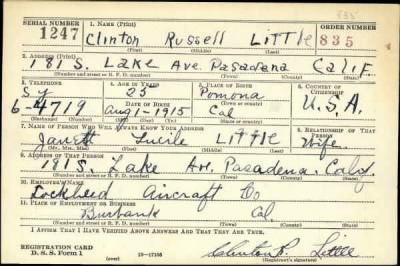 SERIAL NUMBER 1. NAME (Print) ORDER NUMBER
1247 Clinton Russell Little 835
(First) (Middle) (Last)
2. ADDRESS (Print)
181 S. Lake Ave. Pasadena Calif.
(Number and street or R. F. D. number) (Town) (County) (State)
3. TELEPHONE 4. AGE IN YEARS 5. PLACE OF BIRTH 6. COUNTRY OF CITIZENSHIP
Sy 25 Pomona
DATE OF BIRTH (Town or county) U.S.A.
6-4719 Aug 1-1915 Cal
(Exchange) (No.) (Mo.) (Day) (Yr.) (State or country)
7. NAME OF PERSON WHO WILL ALWAYS KNOW YOUR ADDRESS 8. RELATIONSHIP OF THAT PERSON
Lucile Little Wife
(Mr., Mrs., Miss) (First) (Middle) (Last)
9. ADDRESS OF THAT PERSON
181 S. Lake Av. Pasadena. Calif
(Number and street or R. F. D. number) (Town) (County) (State)
10. EMPLOYER'S NAME
Lockheed Aircraft Co
11. PLACE OF EMPLOYMENT OR BUSINESS
Burbank Cal.
(Number and street or R. F. D. number) (Town) (County) (State)
I AFFIRM THAT I HAVE VERIFIED ABOVE ANSWERS AND THAT THEY ARE TRUE.
REGISTRATION CARD
D. S. S. Form 1 (over) 16-17105 Clinton R. Little
(Registrant's signature)